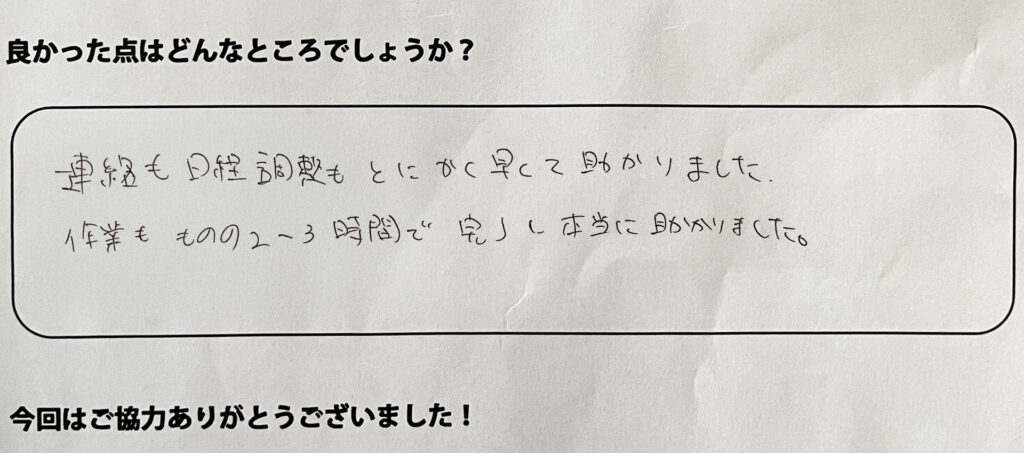 良かった点はどんなところでしょうか？
連絡も日程調整もとにかく早くて助かりました.
作業もものの2〜3時間で完了し本当に助かりました。
今回はご協力ありがとうございました！